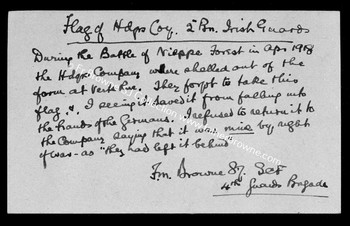 Flag of Hdqrs Coy. 2nd Bn. Irish Guards
During the Battle of Nieppe Forest in Apr 1918
the Hdqrs Company were shelled out of the
farm at Verte Rue. They forgot to take this
flag &. I seeing it saved it from falling into
the hands of the Germans. I refused to return it to
the Company saying that it was mine by right
of war - as "they had left it behind"
Fm. Browne SJ. SCF
4th Guards Brigade